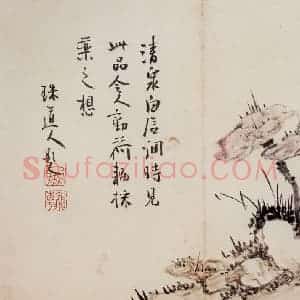 清泉白石澗時見
此品令人動荷鋤採
藥之想
珠道人
Shufaziliao.com